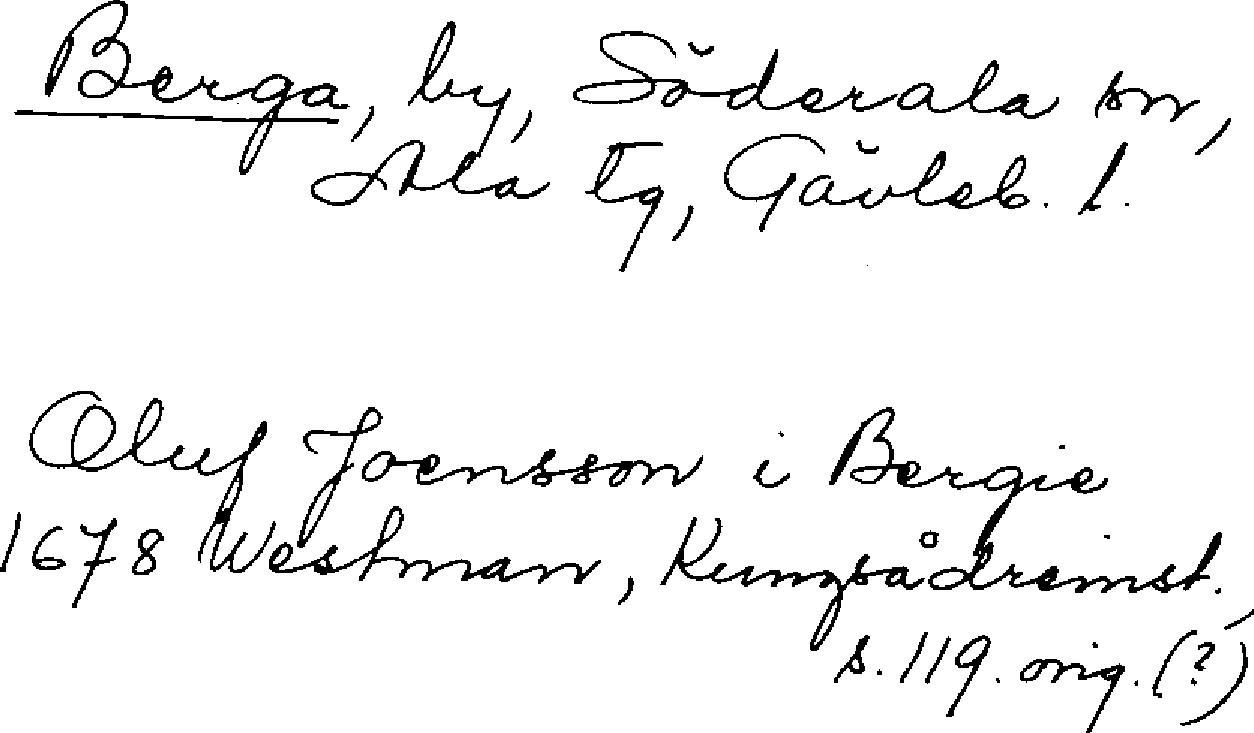 Berga, by, Söderala sn,
Ala tg, Gävleb. l.
Oluf Joensson i Bergie
1678 Westman, Kungsådreinst.,
s. 119. orig. (?)